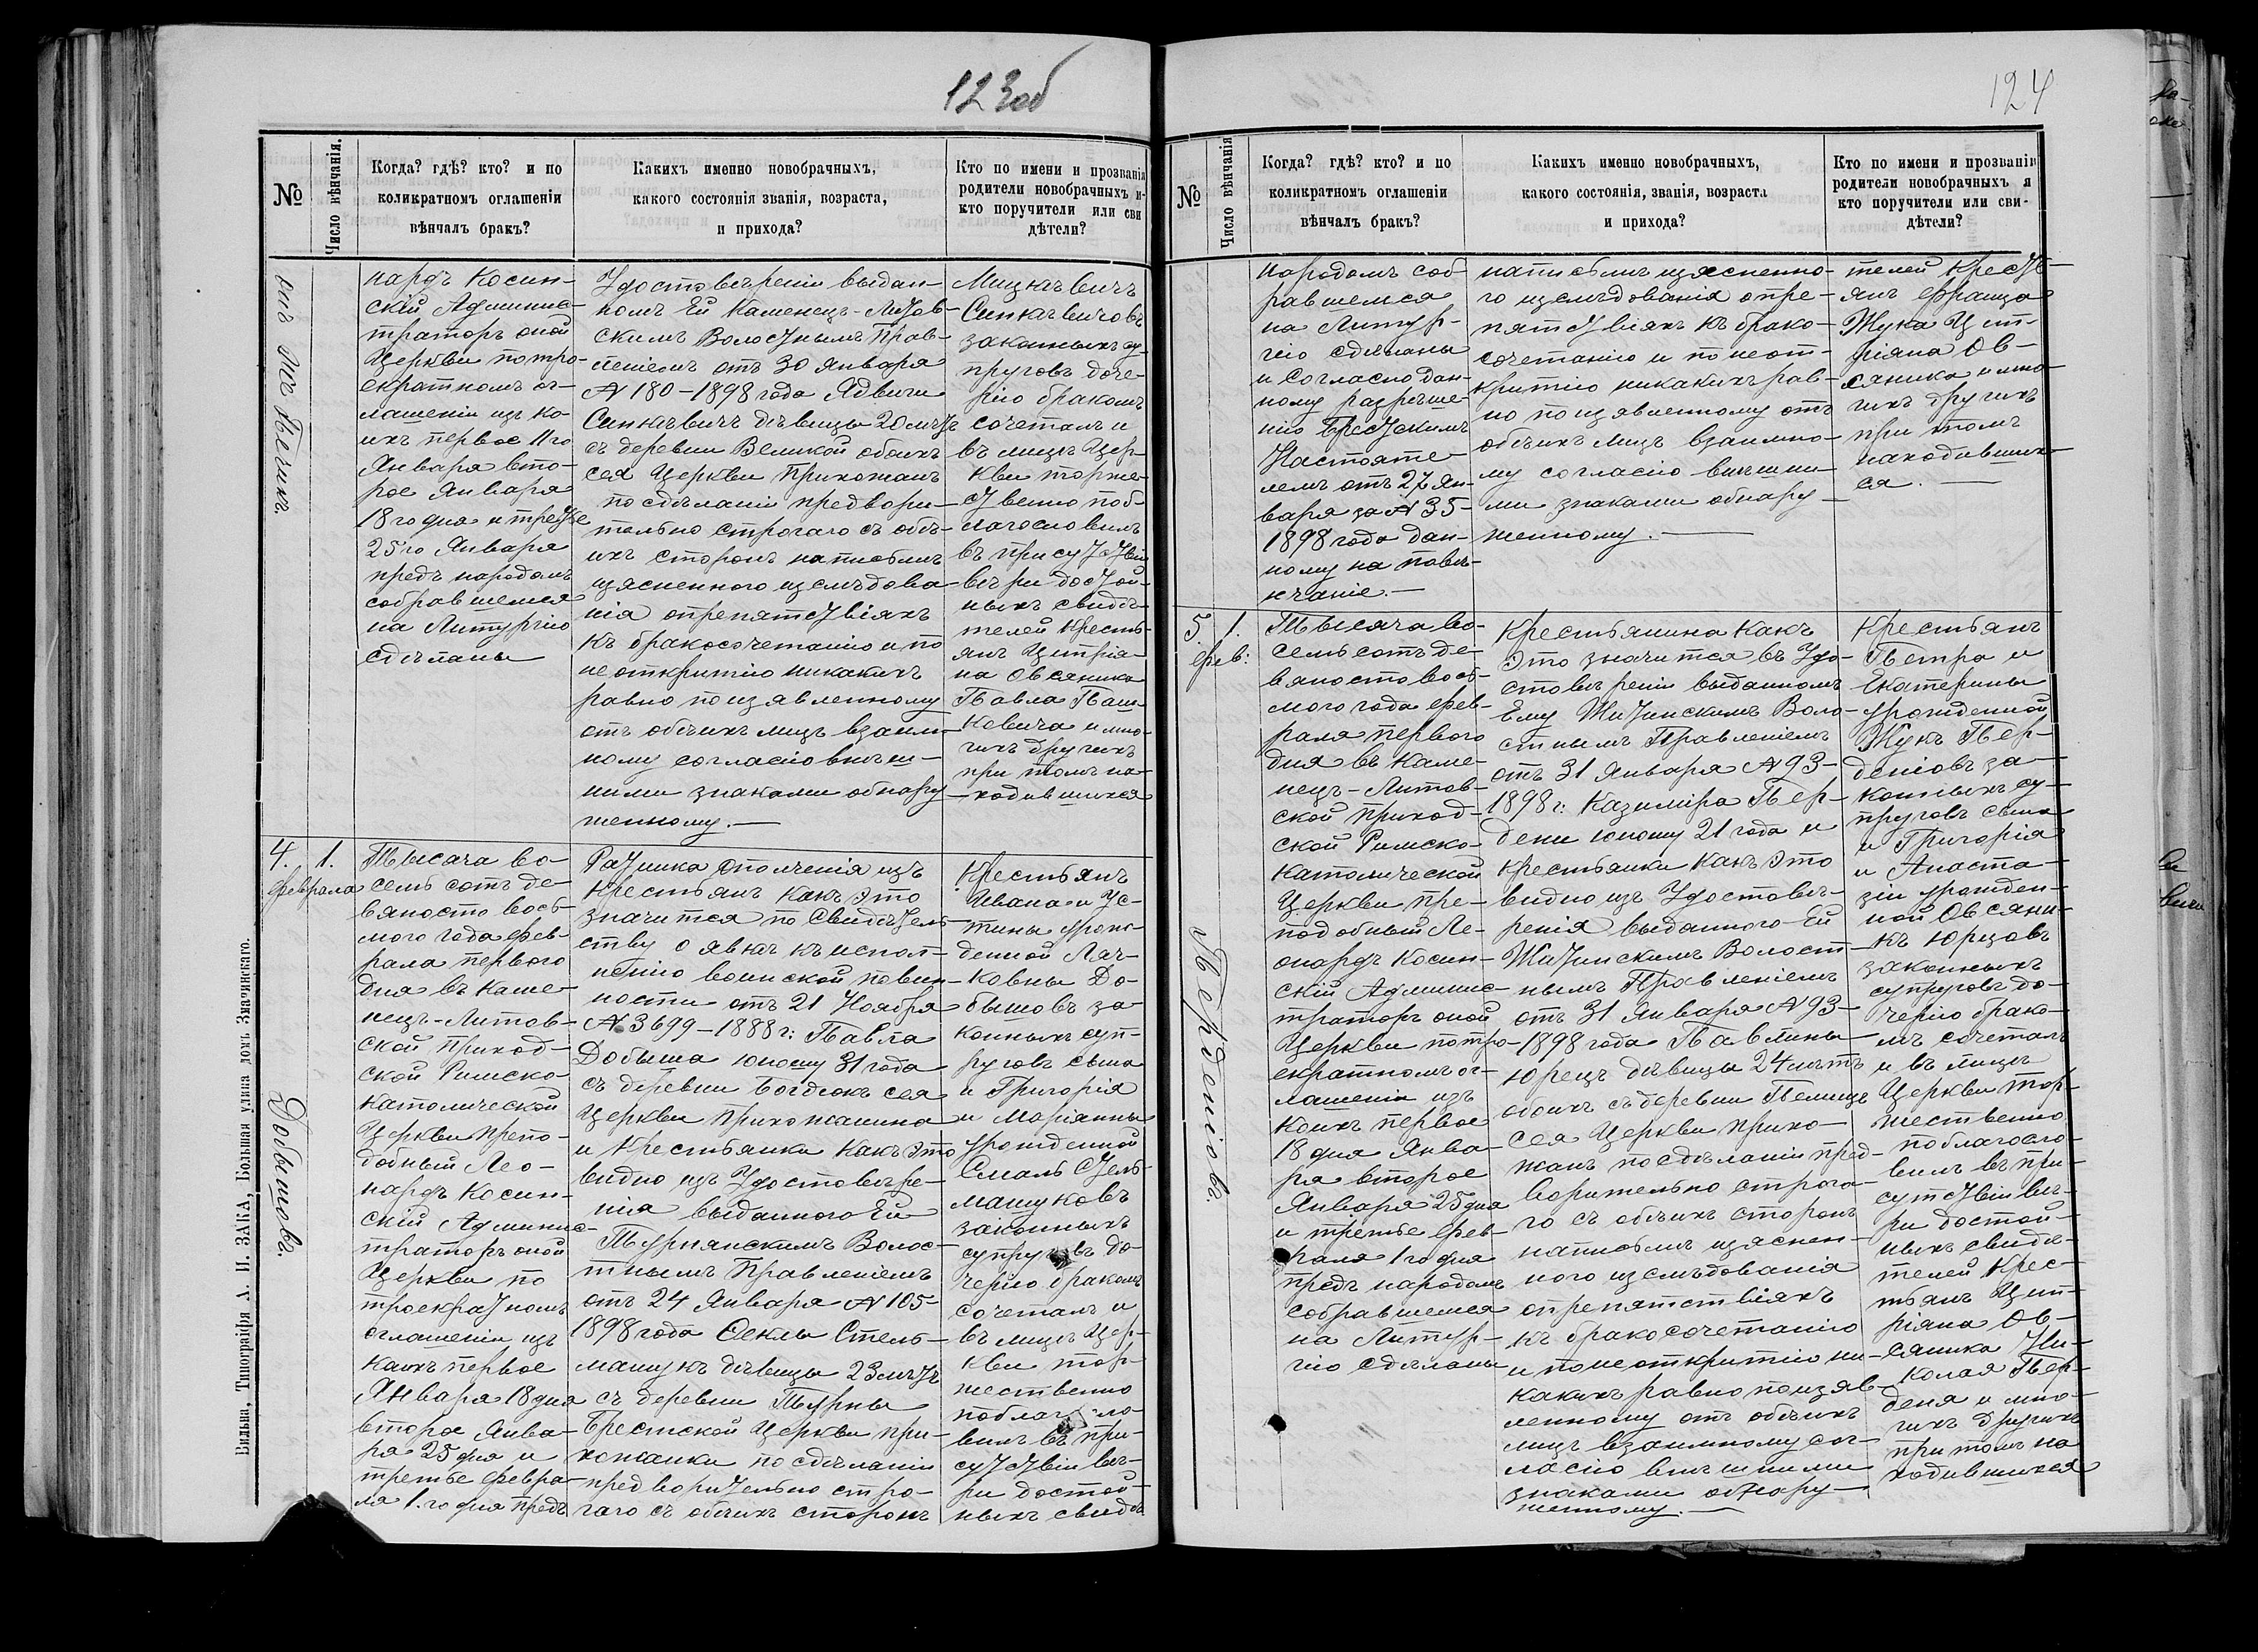 123об
№
Число вѣнчанія.
Когда? гдѣ? кто? и по
коликратномъ оглашеніи
вѣнчалъ бракъ?
Какихъ именно новобрачныхъ,
какого состоянія званія, возраста,
и прихода?
Кто по имени и прозванія
родители новобрачныхъ и
кто поручители или сви
дѣтели?
нардъ Косин-
скій Админис-
траторъ оной
Церкви по тро-
екратномъ ог-
лашеніи изъ ко-
ихъ первое 11го
Января вто-
рое Января
18го дня и третье
25го Января
предъ народомъ
собравшемся
на Литургію
сдѣланы
Удостовѣреніи выдан-
номъ Ей Каменецъ-Литов-
скимъ Волостнымъ Прав-
леніемъ отъ 30 Января
№ 180-1898 года Ядвиги
Синкѣвичъ дѣвицы 20 лѣтъ
съ деревни Великой обоихъ
сея Церкви Прихожанъ
по сдѣланіи предвори-
тельно строгаго съ обѣ-
ихъ сторонъ написьмѣ
изясненного изслѣдова-
нія опрепятствіяхъ
къ бракосочетанію и по
неоткритію никакихъ
равно поизявленному
отъ обѣихъ лицъ взаим-
ному согласію внѣш-
ними знаками обнару-
женному.—
Мицкѣвичъ
Синкѣвичовъ
законныхъ су-
пруговъ доче-
рію бракомъ
сочеталъ и
въ лицѣ Цер-
кви торже-
ственно поб-
лагословилъ
въ присутствіи
вѣри достой-
ныхъ свидѣ-
телей Кресть-
янъ Ципріа-
на Овсяника
Павла Паш-
кевича и мно-
гихъ другихъ
при томъ на-
ходившихся
4.
1.
февраля
Добышовъ.
Тысяча во-
семь сотъ де-
вяносто вось-
мого года фев-
раля первого
дня въ Каме-
нецъ-Литов-
ской Приход-
ской Римско-
Католической
Церкви Препо-
добный Лео-
нардъ Косин-
скій Админис-
траторъ оной
Церкви по
троекратномъ
оглашеніи изъ
каихъ первое
Января 18 дня
второе Янва-
ря 25 дня и
третье февра-
ля 1.го дня предъ
Ратника ополченія изъ
Крестьянъ какъ это
значится по Свидѣтель-
ству о явкѣ къ испол-
ненію воинской повин-
ности отъ 21 Ноября
№ 3699-1888г: Павла
Добыша юношу 31 года
съ деревни Богдюкъ сея
Церкви Прихожанина
и Крестьянки какъ это
видно изъ Удостовѣре-
нія выданного Ей
Турнянскимъ Волос-
тнымъ Правленіемъ
отъ 24 Января № 105-
1898 года Феклы Стель-
машукъ дѣвицы 23 лѣтъ
съ деревни Турны
Брестской Церкви при-
хожанки по сдѣланіи
предворительно стро-
гаго съ обѣихъ сторонъ
Крестьянъ
Ивана и Ус-
тины урож-
денной Лач-
ковны До-
бышовъ за-
конныхъ суп-
руговъ сына
и Григорія
и Маріанны
урожденной
Смаль Стель-
машуковъ
законныхъ
супруговъ до-
черію бракомъ
сочеталъ и
въ лицѣ Цер-
кви тор-
жественно
поблагосло-
вилъ въ при-
сутствіи вѣ-
ри достой-
ныхъ свидѣ
Вильна, Типографія А. И. ЗАКА, Большая улица домъ Значинскаго.
124
№
Число вѣнчанія
Когда? гдѣ? кто? и по
коликратномъ оглашеніи
вѣнчалъ бракъ?
Какихъ именно новобрачныхъ,
какого состоянія, званія, возраста
и прихода?
Кто по имени и прозванію
родители новобрачныхъ я
кто поручители или сви-
дѣтели?
народомъ соб-
равшемся
на Литур-
гію сдѣланы
и согласно дан-
ному разрѣше-
нію Брестскимъ
Настояте-
лемъ отъ 27 Ян-
варя за № 35-
1898 года дан-
ному на повѣ-
нчаніе.—
написьмѣ изясненно-
го изслѣдованія опре-
пятствіяхъ къ брако-
сочетанію и по неот-
критію никакихъ рав-
но по изявленному отъ
обѣихъ лицъ взаимно-
му согласію внѣшни-
ми знаками обнару-
женному.—
телей Кресть-
янъ Франца
Жука Цип-
ріяна Ов-
сяника и мно-
гихъ другихъ
при томъ
находивших-
ся.—
5.
1.
фев:
Пердёніовъ.
Тысяча во-
семь сотъ де-
вяносто вось-
мого года фев-
раля первого
дня въ Каме-
нецъ-Литов-
ской Приход-
ской Римско-
Католической
Церкви пре-
подобный Ле-
онардъ Косин-
скій Админис-
траторъ оной
Церкви по тро-
екратномъ ог-
лашеніи изъ
коихъ первое
18 дня Янва-
ря второе
Января 25 дня
и третье фев-
раля 1 го дня
предъ народомъ
собравшемся
на Литур-
гію сдѣланы
Крестьянина какъ
это значится въ Удо-
стовѣреніи выданномъ
Ему Житинскимъ Воло-
стнымъ Правленіемъ
отъ 31 Января № 93-
1898г: Казиміра Пер-
дени юношу 21 года и
крестьянки какъ это
видно изъ Удостовѣ-
ренія выданного Ей
Житинскимъ Волост-
нымъ Правленіемъ
отъ 31 Января № 93-
1898 года Павлины
Юрецъ дѣвицы 24 лѣтъ
обоихъ съ деревни Пелищъ
сея Церкви прихо-
жанъ по сдѣланіи пред-
ворительно строга-
го съ обѣихъ сторонъ
написьмѣ изяснен-
ного изслѣдованія
опрепятствіяхъ
къ бракосочетанію
и по неоткритію ни-
какихъ равно поизяв-
ленному отъ обѣихъ
лицъ взаимному сог-
ласію внѣшними
знаками обнару-
женному.—
Крестьянъ
Петра и
Екатерины
урожденной
Жукъ Пер-
деніовъ за-
конныхъ су-
пруговъ сына
и Григорія
и Анаста-
зіи урожден-
ной Овсяни-
къ Юрцовъ
законныхъ
супруговъ до-
черію брако-
мъ сочеталъ
и въ лицѣ
Церкви тор-
жественно
поблагосло-
вилъ въ при-
сутствіи вѣ-
ри достой-
ныхъ свидѣ-
телей Крес-
тьянъ Цип-
ріяна Ов-
сяника Ни-
колая Пер-
деня и мно-
гихъ другихъ
притомъ на
ходившихся